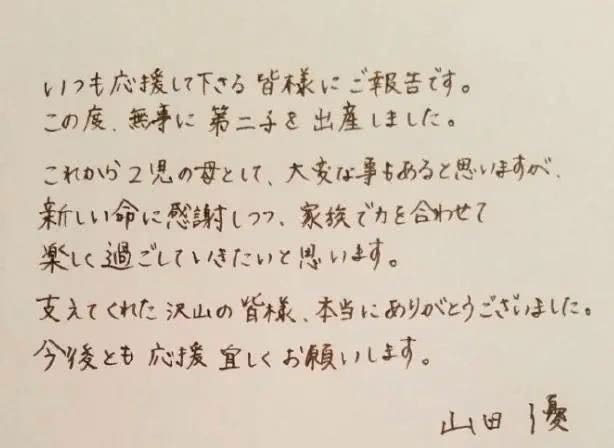 いつも応援して下さる皆様にご報告です。
この度、無事に第二子を出産しました。
これから2児の母として、大変な事もあると思いますが、
新しい命に感謝しつつ、家族で力を合わせて
楽しく過ごしていきたいと思います。
支えてくれた沢山の皆様、本当にありがとうございました。
今後とも応援宜しくお願いします。
山田優